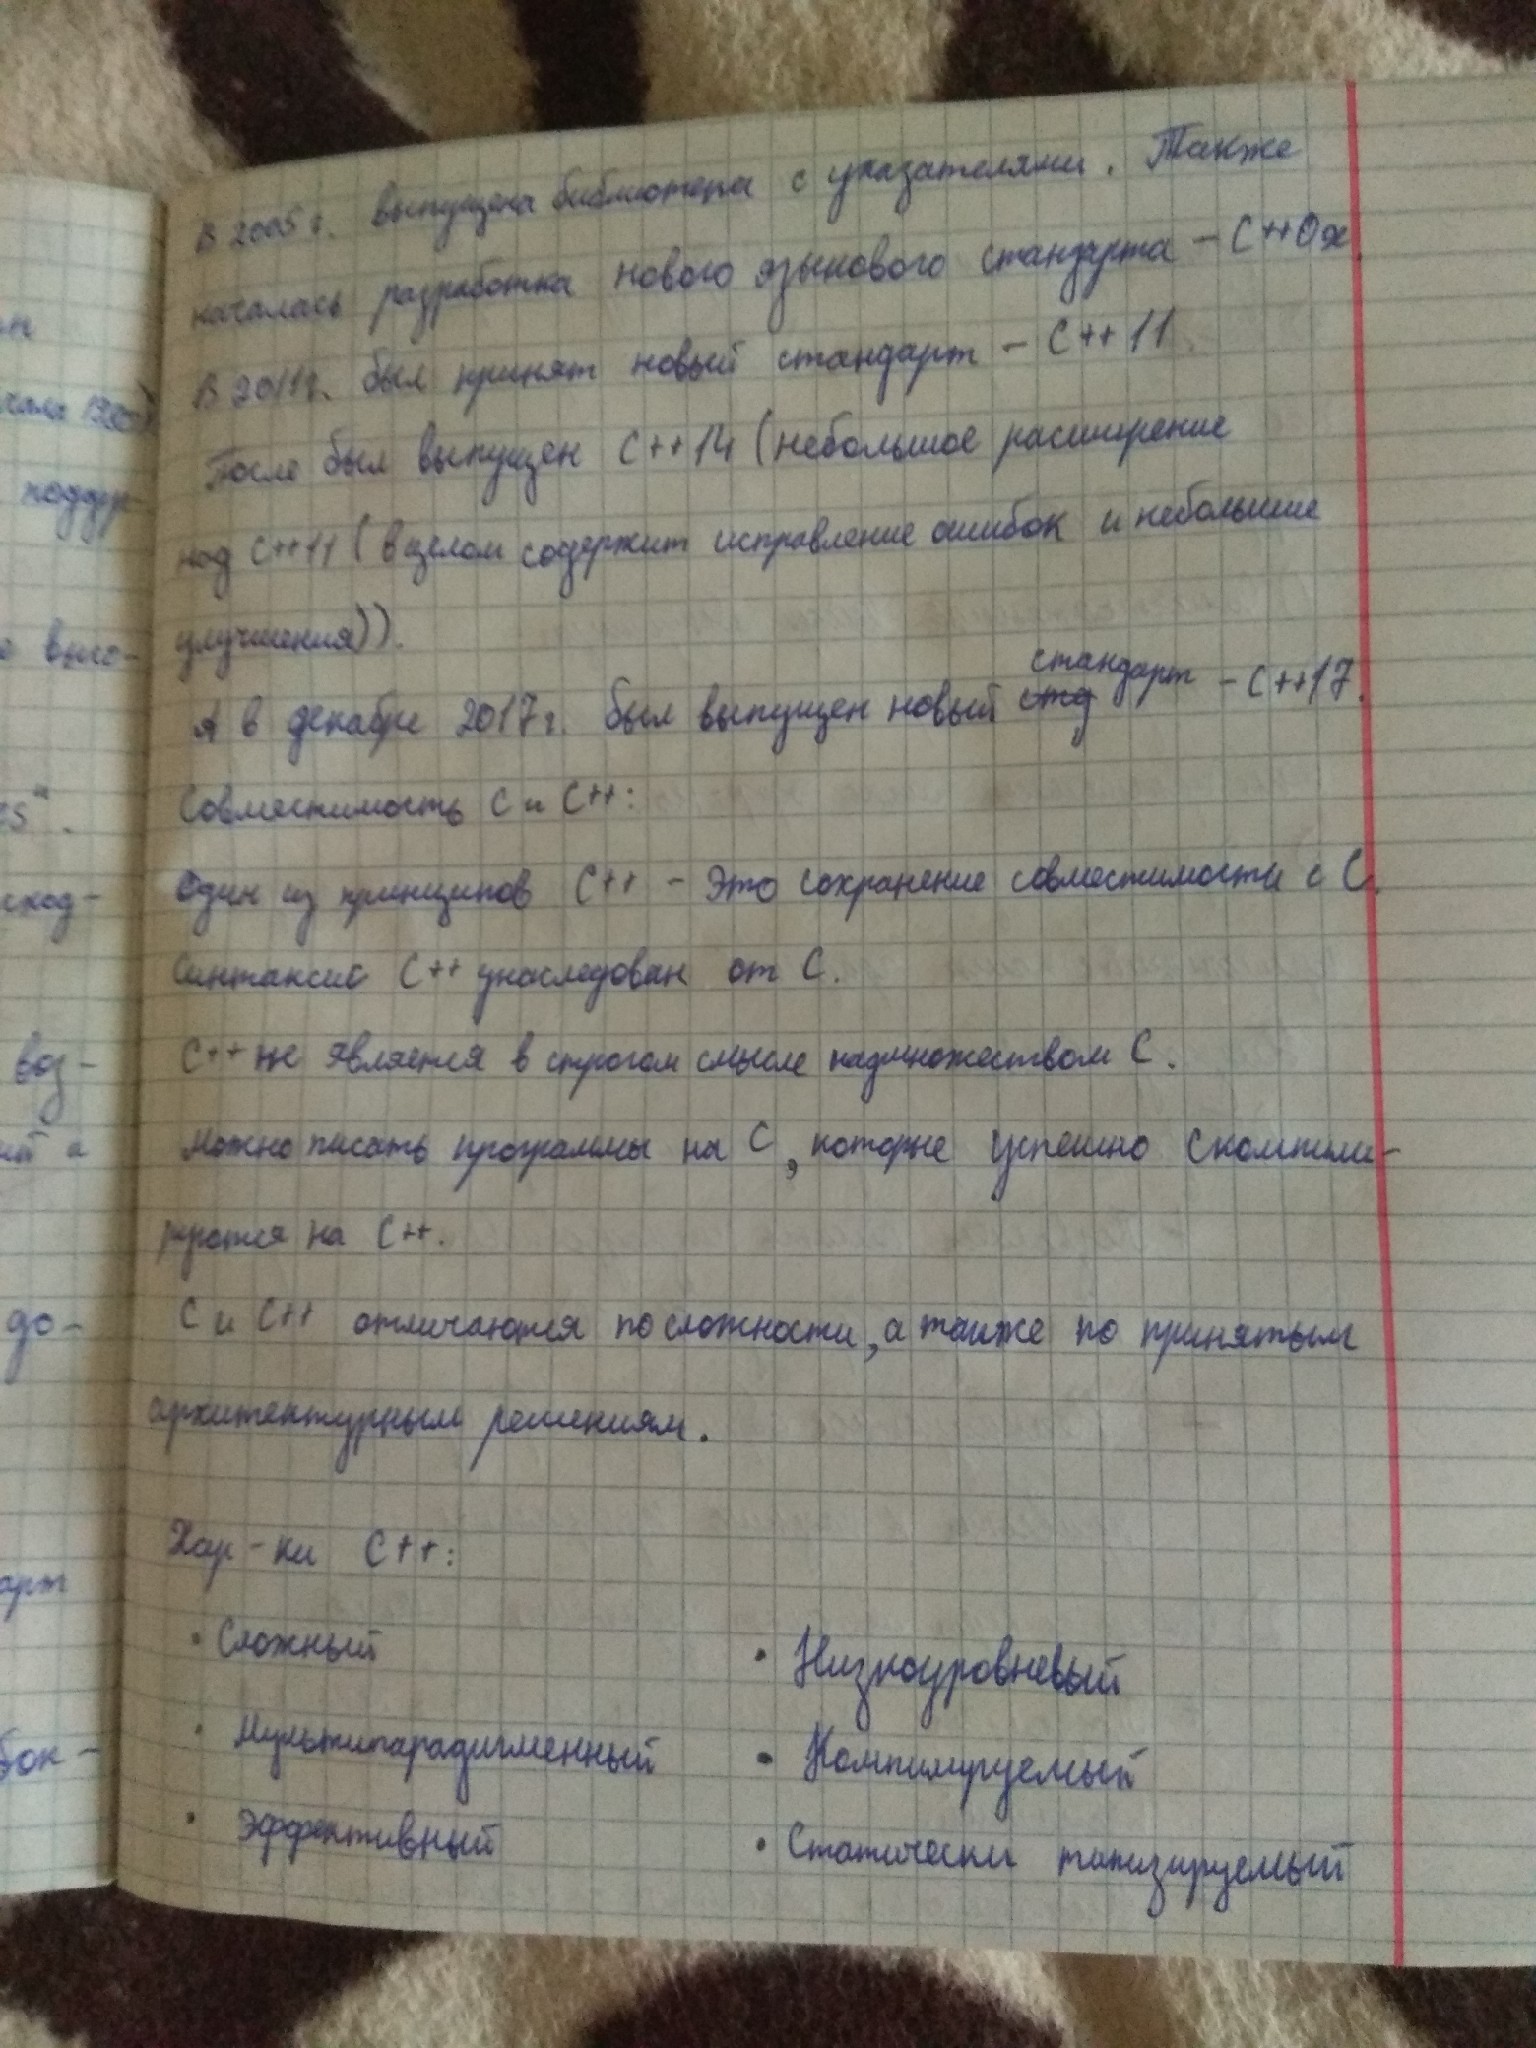 В 2005 г. выпущена библиотека с указателями. Также
началась разработка нового языкового стандарта – С++0x.
В 2011г. был принят новый стандарт – С++ 11.
После был выпущен С++14 (небольшое расширение
над С++11 (в целом содержит исправление ошибок и небольшие
улучшения)).
стандарт
А в декабре 2017г. был выпущен новый стд – С++17.
Совместимость С и С++:
Один из принципов С++ – это сохранение совместимости с С.
Синтаксис С++ унаследован от С.
С++ не является в строгом смысле надмножеством С.
Можно писать программы на С, которые успешно скомпили-
руются на С++.
С и С++ отличаются по сложности, а также по принятым
архитектурным решениям.
Хар-ки С++:
• Сложный
• Низкоуровневый
• Мультипарадигменный
• Компилируемый
• Эффективный
• Статически типизируемый
поддер-
сход-
воз-
до-